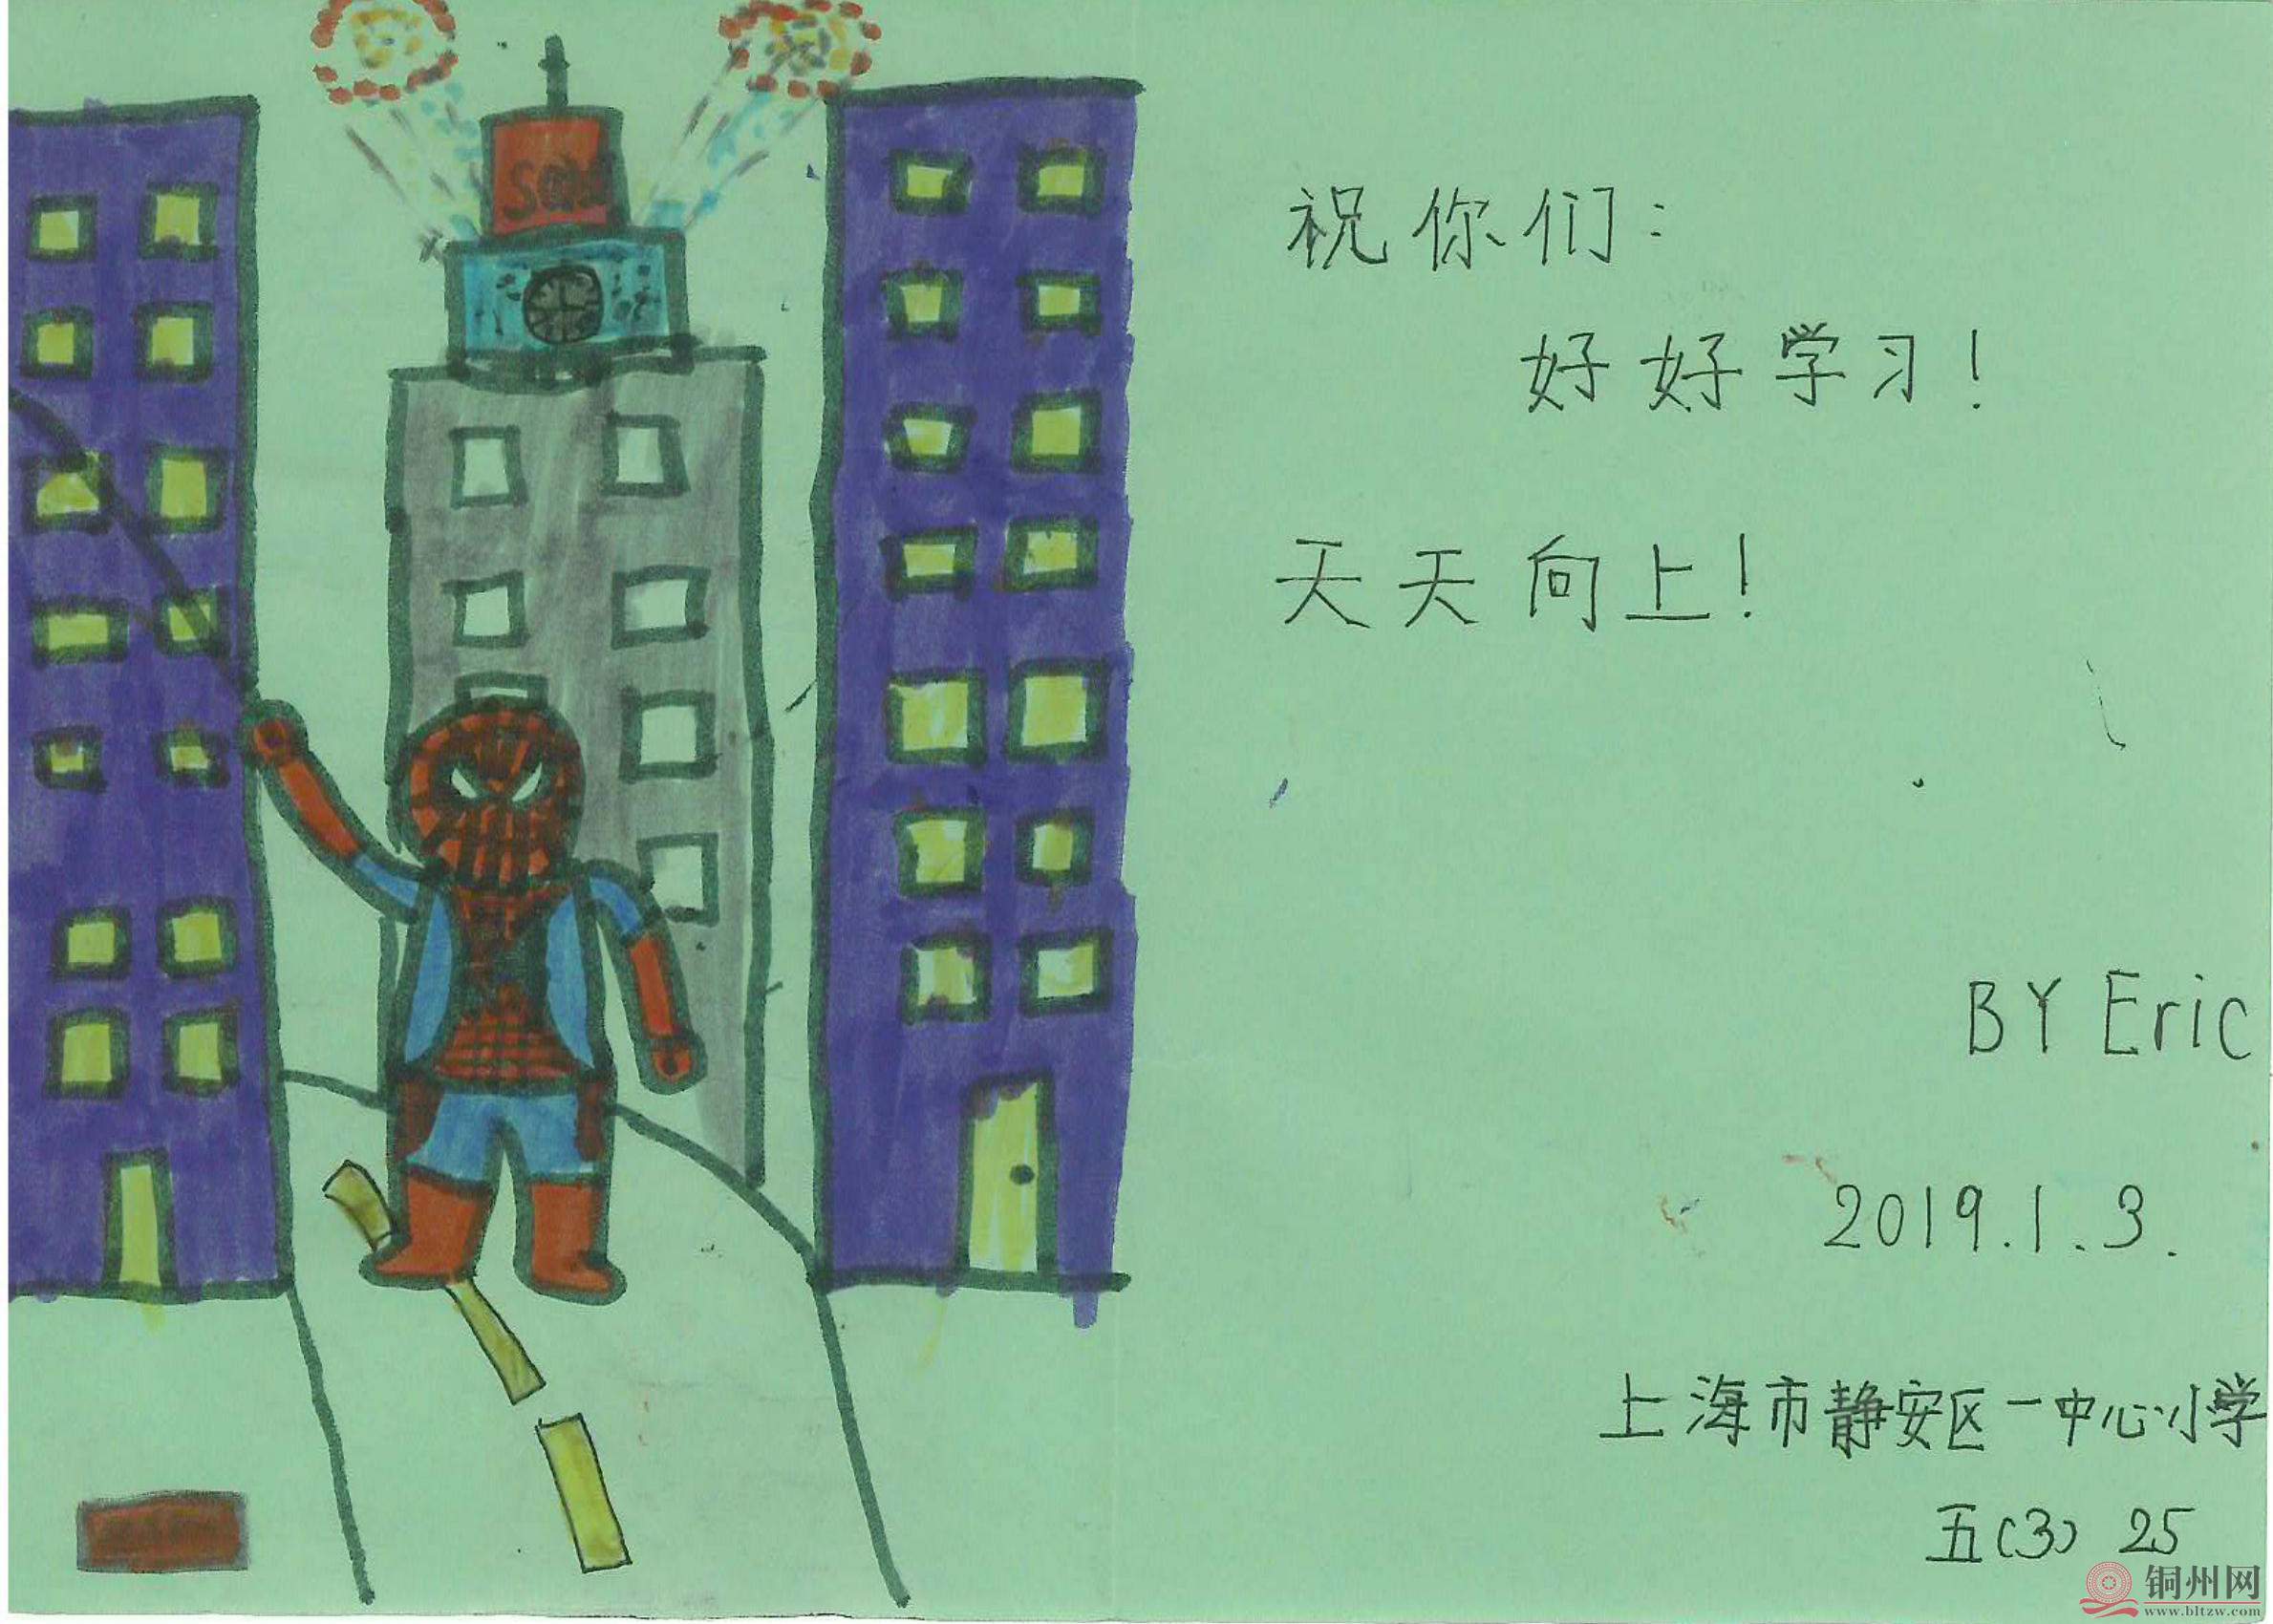 祝你们:
好好学习!
天天向上!
BY Eric
2019.1.3.
上海市静安区一中心小学
五(3) 25
铜州网
www.bltzw.com